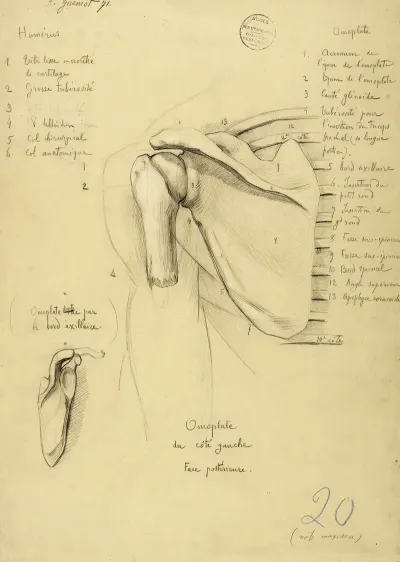 Humérus
1 Tête lisse
de cartilage
2 Grosse tubérosité
3
4 V deltoïdien
5 Col chirurgical
6 Col anatomique
1
2
4
Omoplate
1. Acromion de
l'épine de l'omoplate
2 Epine de l'omoplate
3 Cavité glénoïde
4 Tubérosité pour
l'insertion du triceps
portion).
5 bord axillaire
6. Insertion du
petit rond
7 Insertion du
gd rond
8 Fosse sous-épineuse
9 Fosse sus-épineuse
10 Bord spinal
12 Angle supérieur
13 Apophyse coracoïde
13
12
2e côte
1
3
8
5
7
10e côte
Omoplate vue par
le bord axillaire
Omoplate
du côté gauche
Face postérieure.
20